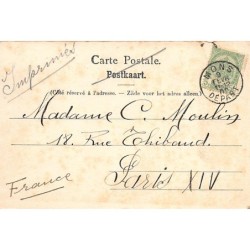 Carte Postale.
Postkaart.
(Côté réservé à l'adresse. - Zijde voor het adres alleen.)
Imprimé
MONS
DEPART
Madame C. Moulin
18. Rue Thibaud.
Paris XIV
France